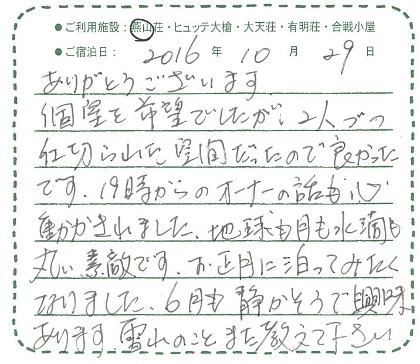 ●ご利用施設:燕山荘・ヒュッテ大槍・大天荘・有明荘・合戦小屋
●ご宿泊日: 2016 年 10 月 29 日
ありがとうございます.
個室を希望でしたが、2人づつ
仕切られた空間だったので良かった
です、19時からのオーナーの話も心
動かされました、地球も月も水滴も
丸い素敵です。お正月に泊ってみたく
なりました、6月も静かそうで興味
あります 雷鳥のこと また教えて下さい